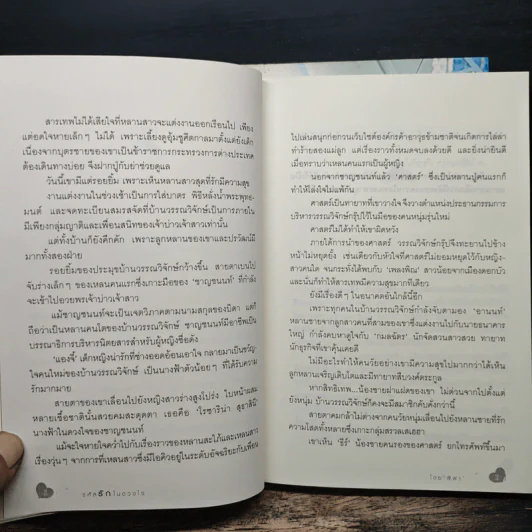 สารเทพไม่ได้เสียใจที่หลานสาวจะแต่งงานออกเรือนไป เพียง
แต่อดใจหายเล็กๆ ไม่ได้ เพราะเลี้ยงดูอุ้มชูศีตกาลมาตั้งแต่ยังเด็ก
เนื่องจากบุตรชายของเขาเป็นข้าราชการกระทรวงการต่างประเทศ
ต้องเดินทางบ่อย จึงฝากปู่กับย่าช่วยดูแล
วันนี้เขามีแต่รอยยิ้ม เพราะเห็นหลานสาวสุดที่รักมีความสุข
งานแต่งงานในช่วงเช้าเป็นการใส่บาตร พิธีหลั่งน้ำพระพุทธ-
มนต์ และจดทะเบียนสมรสจัดที่บ้านวรรณวิจักษ์เป็นการภายใน
มีเพียงกลุ่มญาติและเพื่อนสนิทของเจ้าบ่าวเจ้าสาวเท่านั้น
แต่ทั้งบ้านก็ยังคึกคัก เพราะลูกหลานของเขาและปรวัฒน์มี
มากทั้งสองฝ่าย
รอยยิ้มของประมุขบ้านวรรณวิจักษ์กว้างขึ้น สายตาเบนไป
จับร่างเล็กๆ ของเหลนคนแรกซึ่งเกาะมือของ 'ชาญชนนท์' ที่กำลัง
จะเข้าไปอวยพรเจ้าบ่าวเจ้าสาว
แม้ชาญชนนท์จะเป็นเจตวิภาคตามนามสกุลของบิดา แต่ก็
ถือว่าเป็นหลานคนโตของบ้านวรรณวิจักษ์ ชาญชนนท์มีอาชีพเป็น
บรรณาธิการบริหารนิตยสารสำหรับผู้หญิงชื่อดัง
เด็กหญิงน่ารักที่ช่างออดอ้อนเอาใจ กลายมาเป็นขวัญ
ใจคนใหม่ของบ้านวรรณวิจักษ์ เป็นนางฟ้าตัวน้อยๆ ที่ได้รับความ
รักมากมาย
สายตาของเขาเลื่อนไปยังหญิงสาวร่างสูงโปร่ง ใบหน้าผสม
หลายเชื้อชาตินั้นสวยคมสะดุดตา เธอคือ
นางฟ้าในดวงใจของชาญชนนท์
แม้จะใจหายใจคว่ำไปกับเรื่องราวของหลานสะใภ้และเหลนสาว
เรื่องวุ่นๆ จากการที่เหลนสาวซึ่งมีไอคิวอยู่ในระดับอัจฉริยะกับเพื่อน
รหัสรักในดวงใจ
ไปเล่นสนุกก่อกวนเว็บไซต์องค์กรค้าอาวุธข้ามชาติจนเกิดการไล่ล่า
ทำร้ายสองแม่ลูก แต่เรื่องราวทั้งหมดจบลงด้วยดี และยิ่งน่ายินดี
เมื่อทราบว่าเหลนคนแรกเป็นผู้หญิง
นอกจากชาญชนนท์แล้ว 'ศาสตร์' ซึ่งเป็นหลานปู่คนแรกก็
ทำให้โล่งใจไม่แพ้กัน
ศาสตร์เป็นทายาทที่เขาวางใจจึงวางตำแหน่งประธานกรรมการ
บริหารวรรณวิจักษ์กรุ๊ปไว้ในมือของคนหนุ่มรุ่นใหม่
ศาสตร์ไม่ได้ทำให้เขาผิดหวัง
ภายใต้การนำของศาสตร์ วรรณวิจักษ์กรุ๊ปจึงทะยานไปข้าง
หน้าไม่หยุดยั้ง เช่นเดียวกับหัวใจที่ศาสตร์ไม่ยอมหยุดไว้กับหญิง-
สาวคนใด จนกระทั่งได้พบกับ 'เพลงพิณ' สาวน้อยจากเมืองดอกบัว
และนั่นก็ทำให้สารเทพมีความสุขมากทีเดียว
ยังมีเรื่องดีๆ ในอนาคตอันใกล้นี้อีก
เพราะทุกคนในบ้านวรรณวิจักษ์กำลังจับตามอง 'อานนท์'
หลานชายจากลูกสาวคนที่สามของเขาซึ่งแต่งงานไปกับนายธนาคาร
ใหญ่ กำลังคบหาดูใจกับ 'กมลฉัตร' นักจัดสวนสาวสวย ทายาท
นักธุรกิจที่เขาคุ้นเคยดี
ไม่มีอะไรทำให้คนวัยอย่างเขามีความสุขไปมากกว่าได้เห็น
ลูกหลานเจริญเติบโตและมีทายาทสืบวงศ์ตระกูล
หากสิทธิเทพ...น้องชายฝาแฝดของเขา ไม่ด่วนจากไปตั้งแต่
ยังหนุ่ม บ้านวรรณวิจักษ์ก็คงจะมีสมาชิกคับคั่งกว่านี้
สายตาคมกล้าไม่ต่างจากคนวัยหนุ่มเลื่อนไปยังหลานชายที่รัก
ความโสดทั้งหลายซึ่งเกาะกลุ่มสรวลเสเฮฮา
เขาเห็น 'ธีร์' น้องชายคนรองของศาสตร์ ยกโทรศัพท์ขึ้นมา